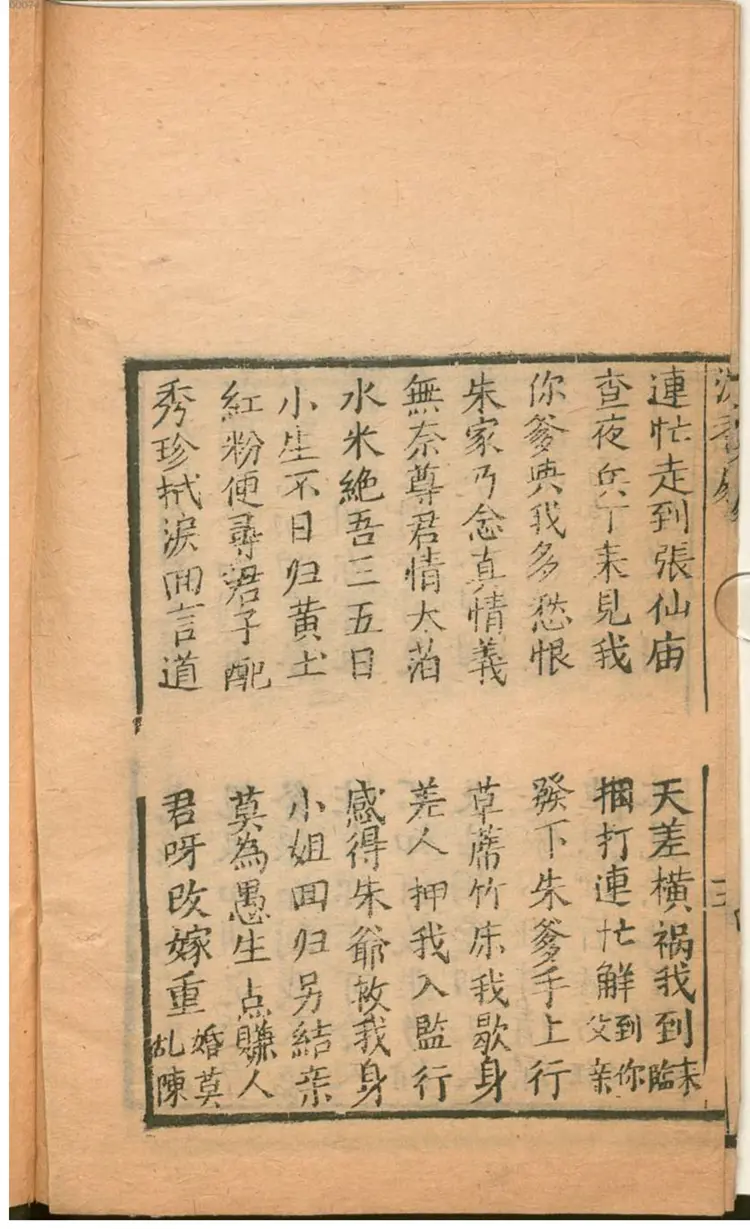 連忙走到張仙庙
天差橫祸我到来臨
查夜兵丁来見我
捆打連忙觧到你父亲
你爹典我多愁恨
發下朱爹手上行
朱家乃念真情義
草蓆竹床我歇身
無奈尊君情太萡
差人押我入監行
水米絶吾三五日
感得朱爺救我身
小生不日归黄土
小姐囬归另結亲
紅粉便尋君子配
莫為愚生点賺人
秀珍拭淚囬言道
君呀改嫁重婚莫乱陳